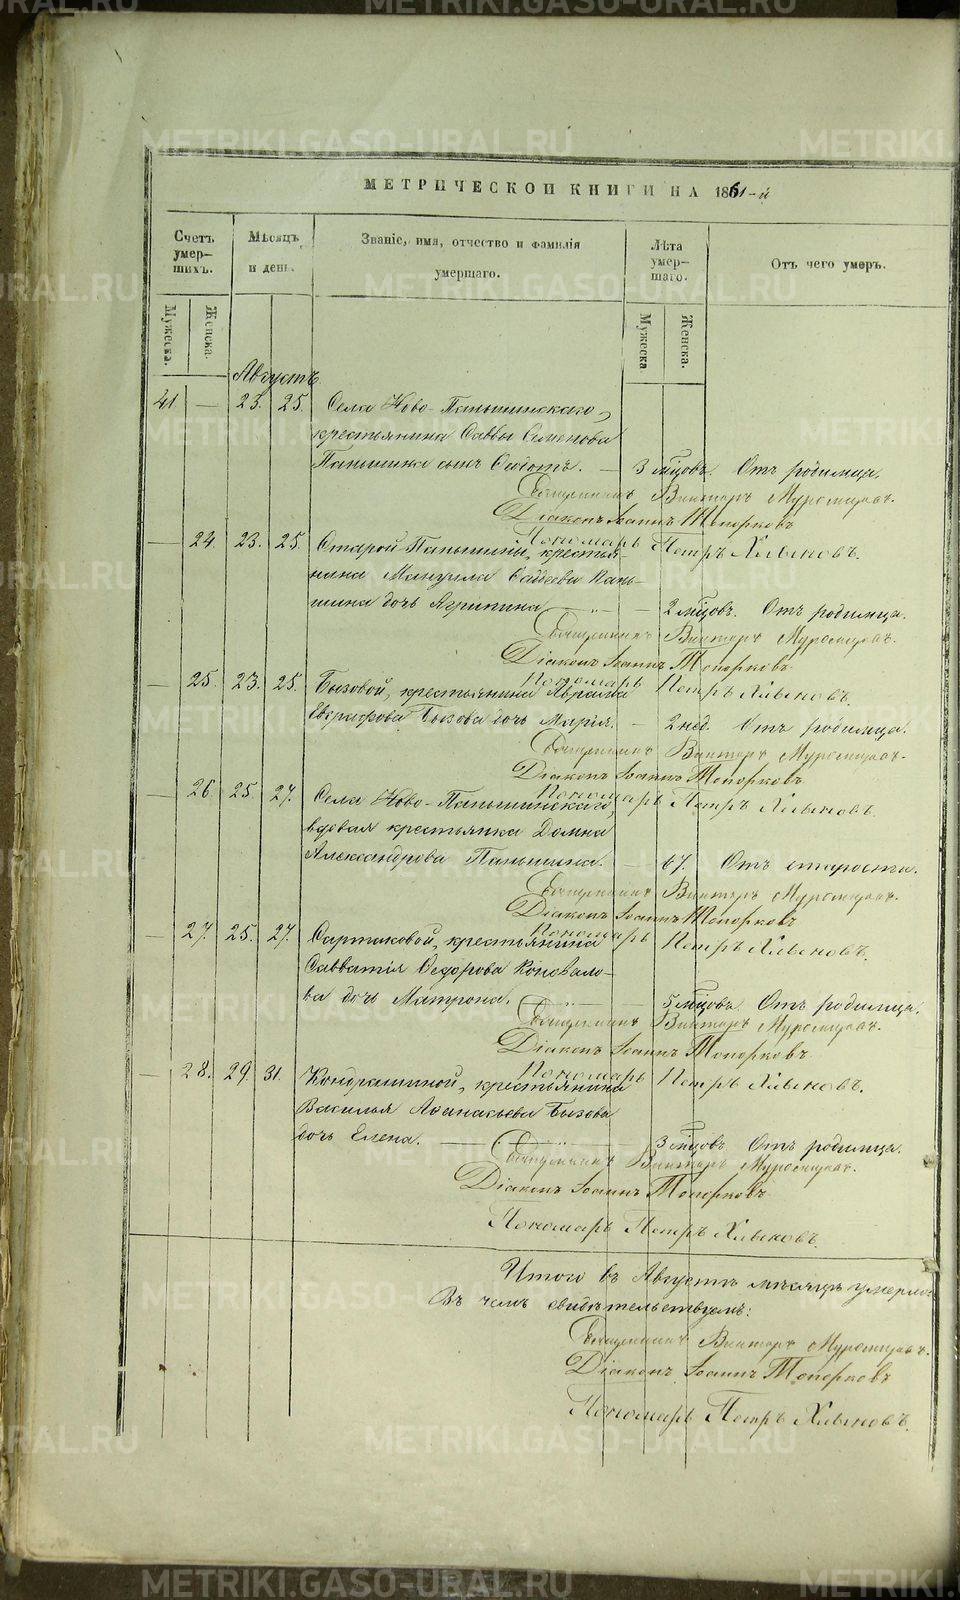 МЕТРИЧЕСКОЙ КНИГИ НА 1861-й
Счетъ умер-шихъ.
Мѣсяцъ и день.
Званіе, имя, отчество и фамилія умершаго.
Лѣта умер-шаго.
Отъ чего умеръ.
Мужеска.
Женска.
Мужеска
Женска.
Августъ
41 — 23. 25. Села Ново-Паньшинскаго,
крестьянина Саввы Семенова
Паньшина сынъ Ѳедотъ. — 3 мѣцовъ. Отъ родимца.
Священникъ Викторъ Муромцовъ.
Діаконъ Іоаннъ Топорковъ
Пономарь Петръ Хлыновъ.
— 24. 23. 25. Старой Паньшины, крестья-
нина Мануила Ѳаддеева Пань-
шина дочь Агрипина — „ — 2 мѣцовъ. Отъ родимца.
Священникъ Викторъ Муромцовъ.
Діаконъ Іоаннъ Топорковъ.
Пономарь Петръ Хлыновъ.
— 25. 23. 25. Бызовой, крестьянина Авраама
Евграфова Бызова дочь Марія. — 2 нед. Отъ родимца.
Священникъ Викторъ Муромцовъ.
Діаконъ Іоаннъ Топорковъ
Пономарь Петръ Хлыновъ.
— 26. 25. 27. Села Ново-Паньшинскаго,
вдовая крестьянка Домна
Александрова Паньшина. — 67. Отъ старости.
Священникъ Викторъ Муромцовъ.
Діаконъ Іоаннъ Топорковъ
Пономарь Петръ Хлыновъ.
— 27. 25. 27. Сартаковой, крестьянина
Савватія Ѳедорова Коновало-
ва дочь Матрона. — „ — 5 мѣцовъ. Отъ родимца.
Священникъ Викторъ Муромцовъ.
Діаконъ Іоаннъ Топорковъ
Пономарь Петръ Хлыновъ.
— 28. 29. 31. Кондрашиной, крестьянина
Василья Аѳанасьева Бызова
дочь Елена. — „ — 3 мѣцовъ. Отъ родимца.
Священникъ Викторъ Муромцовъ.
Діаконъ Іоаннъ Топорковъ
Пономарь Петръ Хлыновъ.
Итого въ Августѣ мѣсяцѣ умерло
Въ чемъ свидѣтельствуемъ:
Священникъ Викторъ Муромцовъ.
Діаконъ Іоаннъ Топорковъ
Пономарь Петръ Хлыновъ.
METRIKI.GASO-URAL.RU